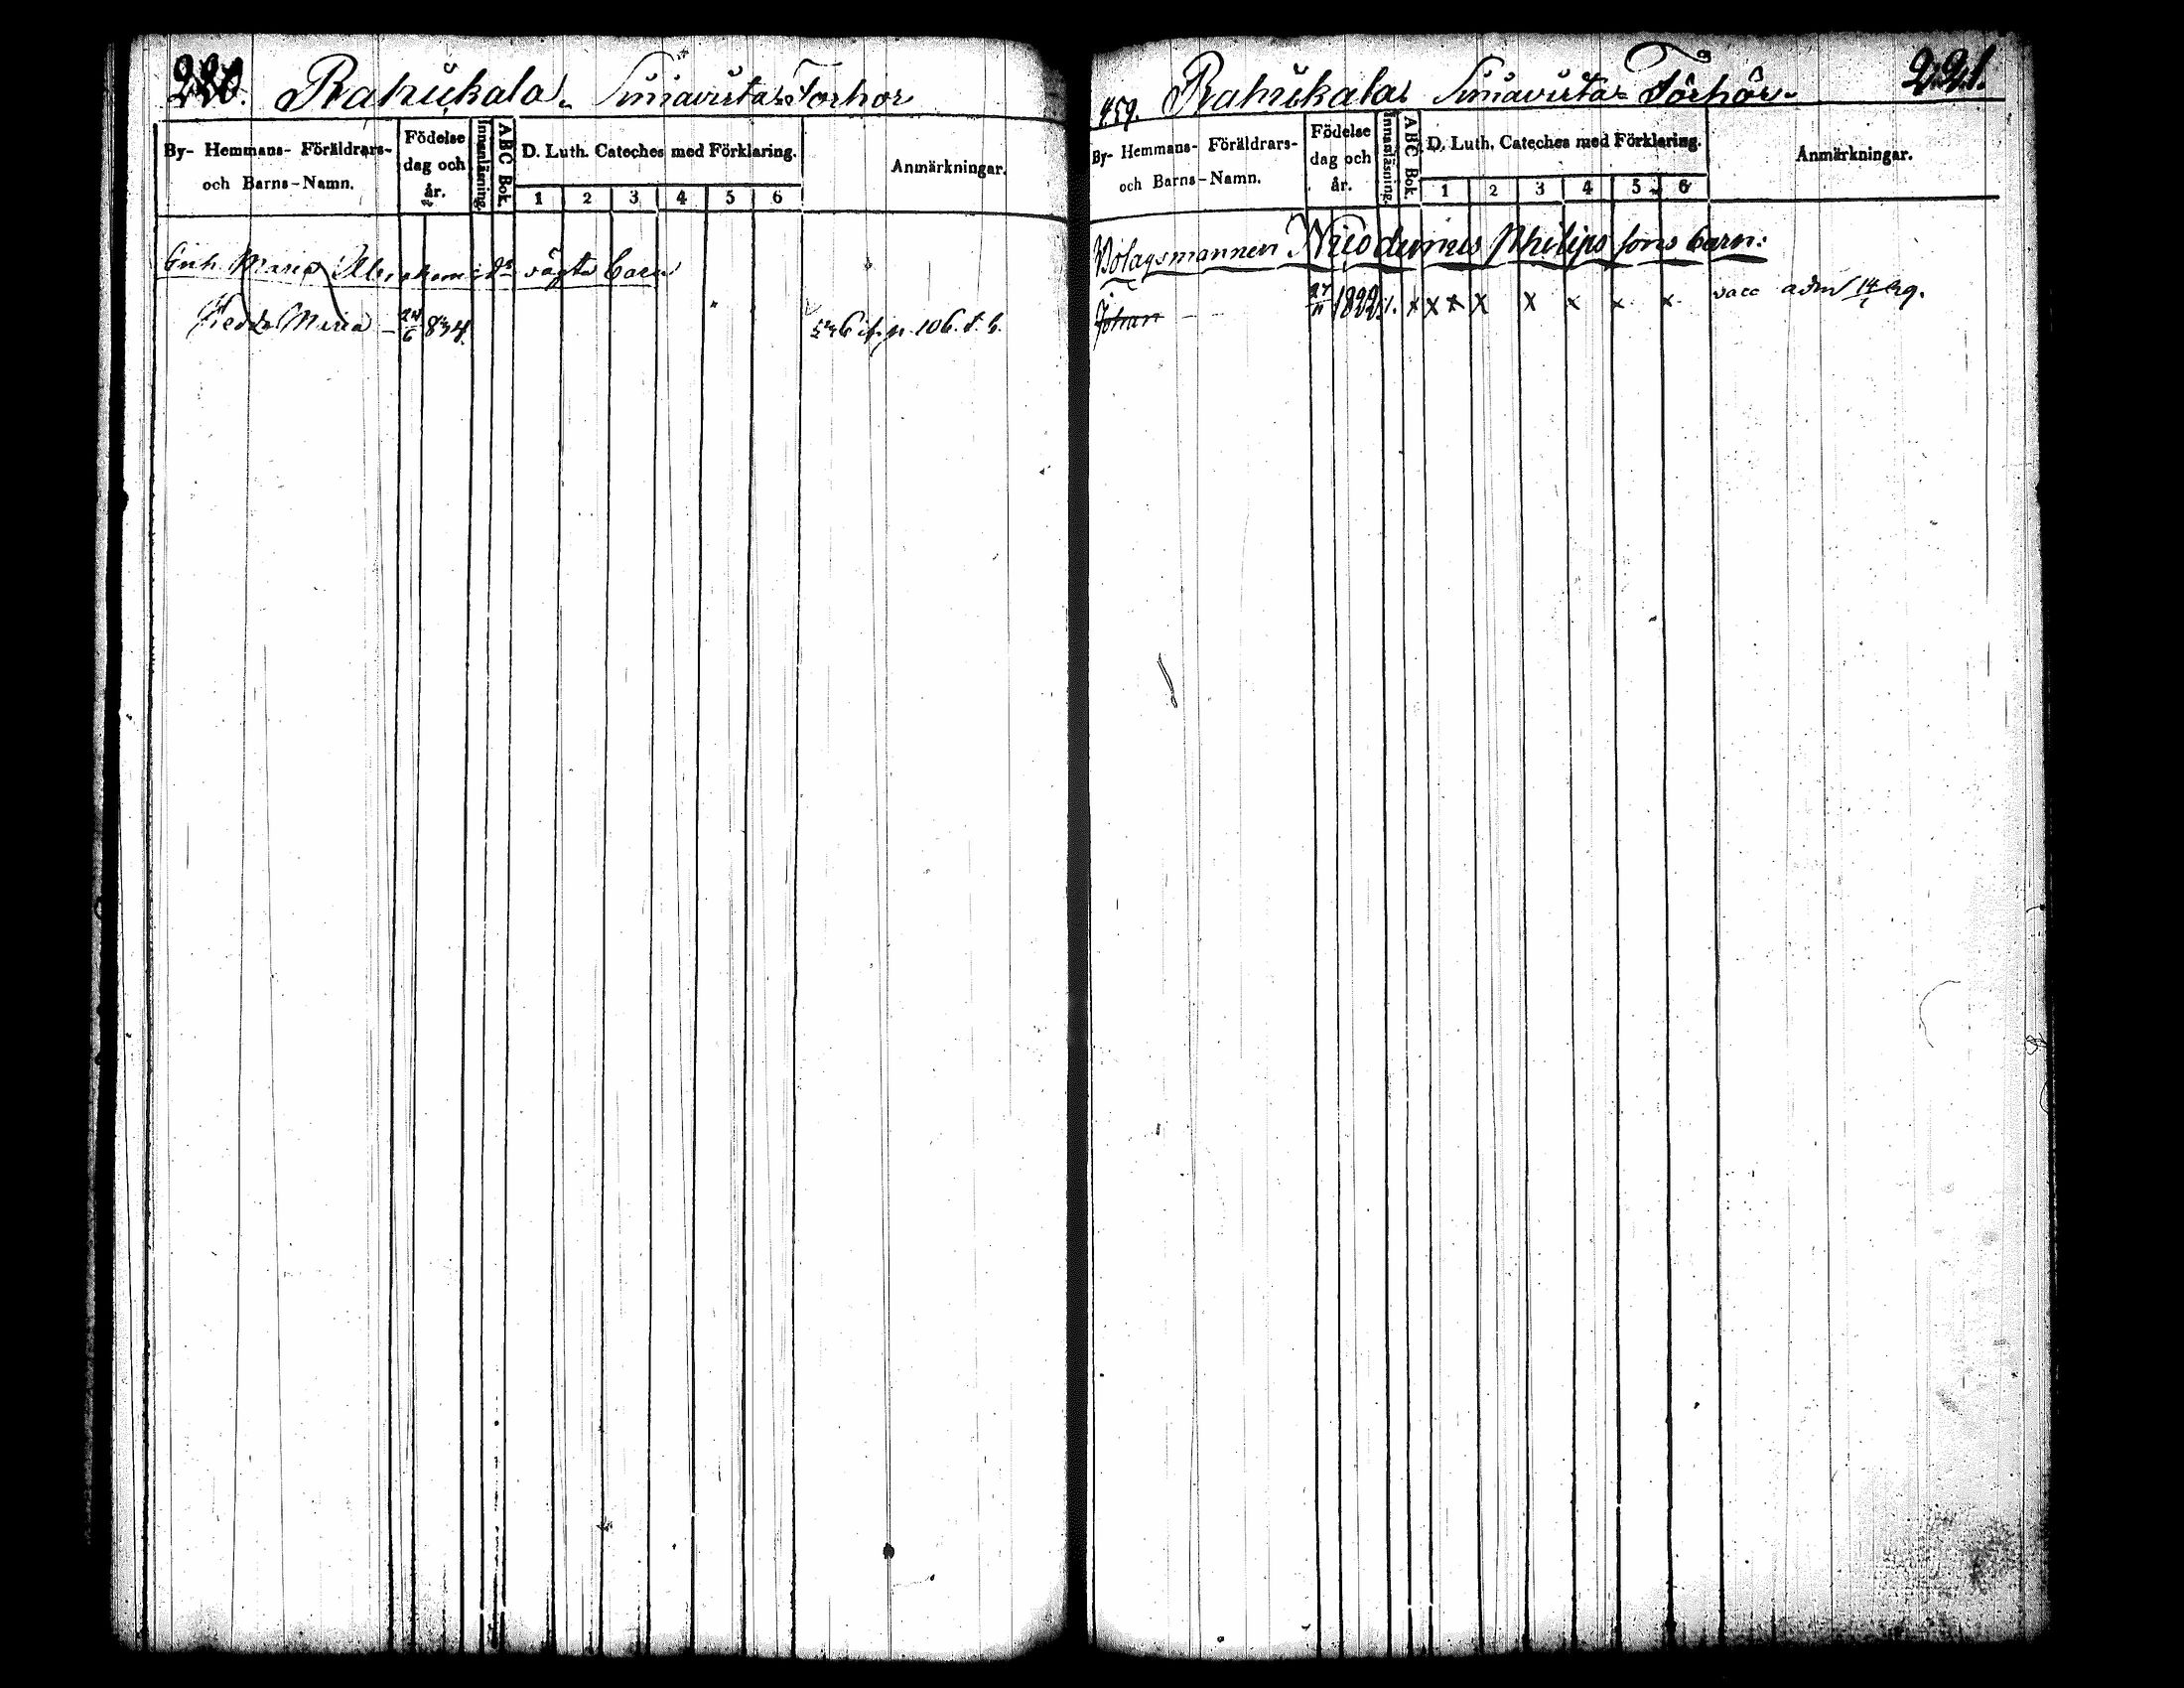 220. Rahukala. Siniavirta Förhör
By- Hemmans- Föräldrars- och Barns-Namn.
Födelse dag och år.
Innanläsning.
ABC Bok.
D. Luth. Cateches med Förklaring.
1 2 3 4 5 6
Anmärkningar.
Maria oägta barn
Hedda Maria 24/6 834.
p. 106.
459. Rahukala Siniavirta Förhör 221.
By- Hemmans- Föräldrars- och Barns-Namn.
Födelse dag och år.
Innanläsning.
ABC Bok.
D. Luth. Cateches med Förklaring.
1 2 3 4 5 6
Anmärkningar.
Bolagsmannen Nicodemus Philips sons barn:
Johan 27/11 1822. x x x x x x x x vacc adm 14/1 39.